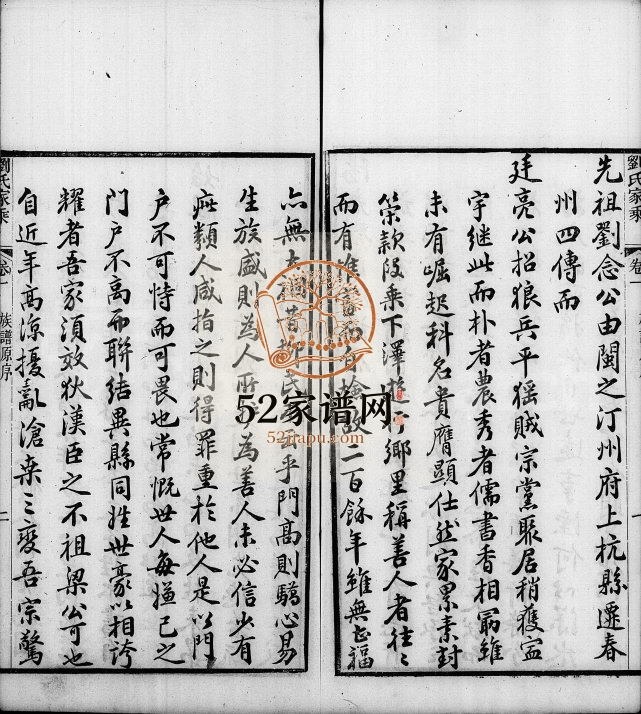 劉氏家乘
卷一
族譜原序
一
先祖劉念公由閩之汀州府上杭縣遷春
州四傳而
廷亮公招狼兵平猺賊宗黨聚居稍舊室
宇繼此而朴者農秀者儒書香相翩雖
未有崛起科名貴膺顯仕然家累素封
築款段乘下澤遊于鄉里稱善人者往々
而有惟 而 故二百餘年雖無
亦無 昔柳氏云乎門高則驕心易
生族盛則為人所 為善人未必信少有
疵纇人咸指之則得罪重於他人是以門
戶不可恃而可畏也常慨世人每嫌己之
門戶不高而聯結異縣同姓世豪以相誇
耀者吾家須效狄漢臣之不祖梁公可也
自近年高涼擾亂滄桑三變吾宗驚
劉氏家乘
卷一
族譜原序
二
52家谱网
52jiapu.com